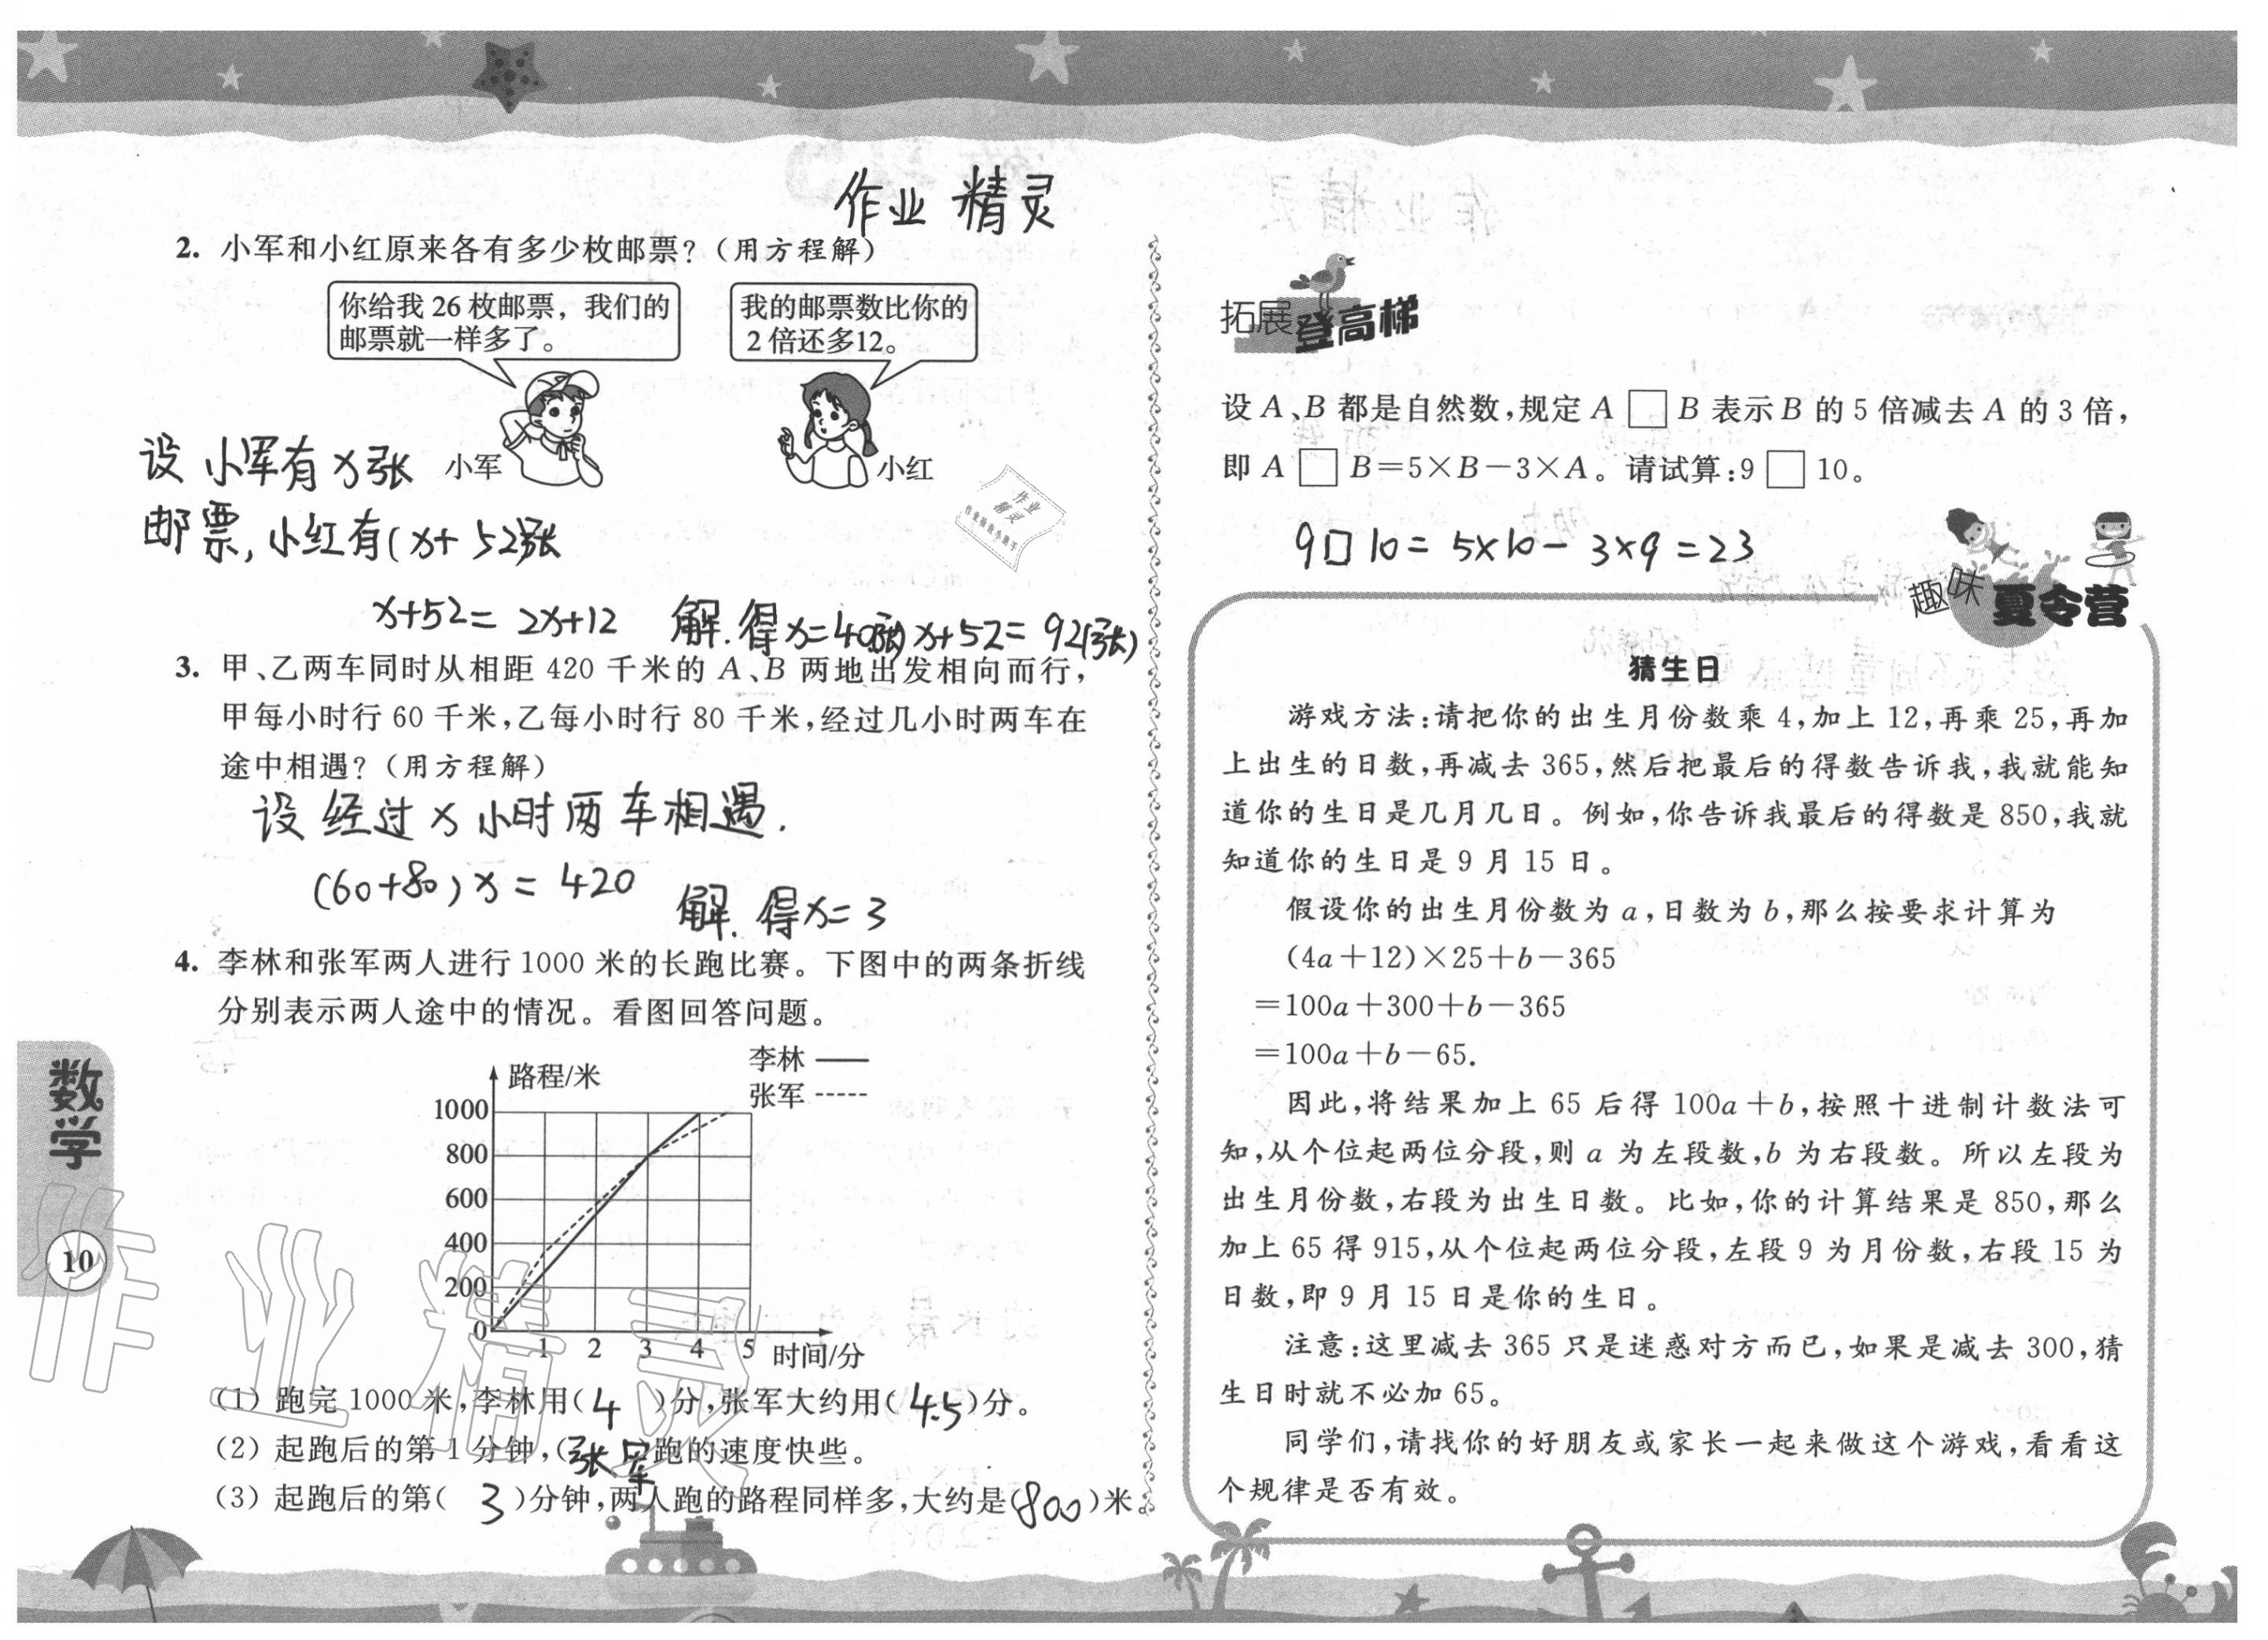 作业 精灵
2. 小军和小红原来各有多少枚邮票?(用方程解)
你给我 26 枚邮票，我们的
邮票就一样多了。
我的邮票数比你的
2 倍还多12。
小军
小红
设 小军有 x 张
邮票, 小红有(x+52)张
x+52= 2x+12 解.得x=40(张) x+52=92(张)
3. 甲、乙两车同时从相距 420 千米的 A、B 两地出发相向而行,
甲每小时行 60 千米,乙每小时行 80 千米,经过几小时两车在
途中相遇?(用方程解)
设 经过 x 小时 两 车相遇.
(60+80)x = 420 解. 得x=3
4. 李林和张军两人进行 1000 米的长跑比赛。下图中的两条折线
分别表示两人途中的情况。看图回答问题。
李林
张军
路程/米
1000
800
600
400
200
0
1 2 3 4 5 时间/分
(1) 跑完 1000 米,李林用( 4 )分,张军大约用( 4.5 )分。
(2) 起跑后的第 1 分钟,(张军)跑的速度快些。
(3) 起跑后的第( 3 )分钟,两人跑的路程同样多,大约是(800)米。
数学
10
作业精灵
拓展登高梯
设 A、B 都是自然数,规定 A □ B 表示 B 的 5 倍减去 A 的 3 倍,
即 A □ B=5×B-3×A。请试算:9 □ 10。
9□10= 5×10- 3×9 =23
趣味夏令营
猜生日
游戏方法:请把你的出生月份数乘 4,加上 12,再乘 25,再加
上出生的日数,再减去 365,然后把最后的得数告诉我,我就能知
道你的生日是几月几日。例如,你告诉我最后的得数是 850,我就
知道你的生日是 9 月 15 日。
假设你的出生月份数为 a,日数为 b,那么按要求计算为
(4a+12)×25+b-365
=100a+300+b-365
=100a+b-65.
因此,将结果加上 65 后得 100a+b,按照十进制计数法可
知,从个位起两位分段,则 a 为左段数,b 为右段数。所以左段为
出生月份数,右段为出生日数。比如,你的计算结果是 850,那么
加上 65 得 915,从个位起两位分段,左段 9 为月份数,右段 15 为
日数,即 9 月 15 日是你的生日。
注意:这里减去 365 只是迷惑对方而已,如果是减去 300,猜
生日时就不必加 65。
同学们,请找你的好朋友或家长一起来做这个游戏,看看这
个规律是否有效。